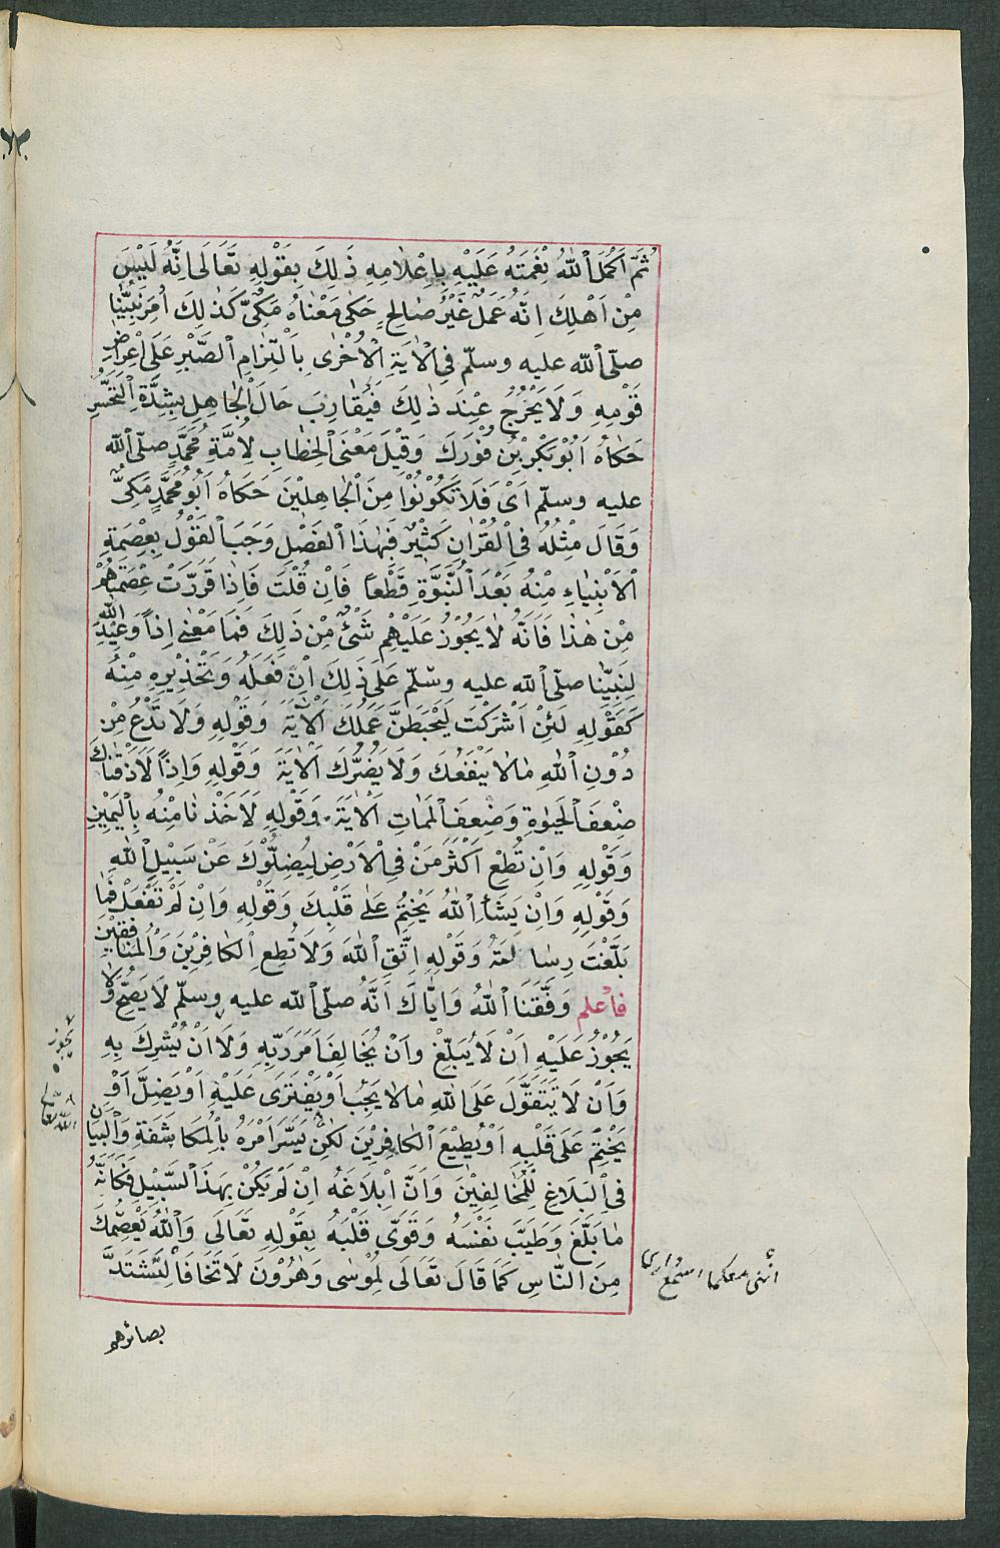 ثُمَّ اَكْمَلَ اللهُ نِعْمَتَهُ عَلَيْهِ بِاِعْلَامِهِ ذَلِكَ بِقَوْلِهِ تَعَالَى اِنَّهُ لَيْسَ
مِنْ اَهْلِكَ اِنَّهُ عَمَلٌ غَيْرُ صَالِحٍ حَكَى مَعْنَاهُ مَكِّىٌّ كَذٰلِكَ اُمِرَ نَبِيُّنَا
صلّى الله عليه وسلّم فِى الْاٰيَةِ الْاُخْرٰى بِالْتِزَامِ الصَّبْرِ عَلَى اِعْرَاضِ
قَوْمِهِ وَلَا يَخْرُجْ عِنْدَ ذٰلِكَ فَيُقَارِبَ حَالَ الْجَاهِلِ بِشِدَّةِ التَّحَسُّرِ
حَكَاهُ اَبُو بَكْرِ بْنُ فُوْرَكَ وَقِيْلَ مَعْنَى الْخِطَابِ لِاُمَّةِ مُحَمَّدٍ صلّى الله
عليه وسلّم اَىْ فَلَا تَكُوْنُوْا مِنَ الْجَاهِلِيْنَ حَكَاهُ اَبُو مُحَمَّدٍ مَكِّىٌّ
وَقَالَ مِثْلُهُ فِى الْقُرْاٰنِ كَثِيْرٌ فَبِهٰذَا الْفَضْلِ وَجَبَ الْقَوْلُ بِعِصْمَةِ
الْاَنْبِيَاءِ مِنْهُ بَعْدَ النُّبُوَّةِ قَطْعًا فَاِنْ قُلْتَ فَاِذَا قَرَّرْتَ عِصْمَتَهُمْ
مِنْ هٰذَا فَاَنَّهُ لَا يَجُوْزُ عَلَيْهِمْ شَىْءٌ مِنْ ذَلِكَ فَمَا مَعْنٰى اِذًا وَعِيْدِ اللهِ
لِنَبِيِّنَا صلّى الله عليه وسلّم عَلَى ذَلِكَ اِنْ فَعَلَهُ وَتَحْذِيْرِهِ مِنْهُ
كَقَوْلِهِ لَئِنْ اَشْرَكْتَ لَيَحْبَطَنَّ عَمَلُكَ الْاٰيَةَ وَقَوْلِهِ وَلَا تَدْعُ مِنْ
دُوْنِ اللهِ مَالَا يَنْفَعُكَ وَلَا يَضُرُّكَ الْاٰيَةَ وَقَوْلِهِ وَاِذًا لَاَذَقْنَاكَ
ضِعْفَ الْحَيٰوةِ وَضِعْفَ الْمَمَاتِ الْاٰيَةَ وَقَوْلِهِ لَاَخَذْنَا مِنْهُ بِالْيَمِيْنِ
وَقَوْلِهِ وَاِنْ تُطِعْ اَكْثَرَ مَنْ فِى الْاَرْضِ لِيُضِلُّوْكَ عَنْ سَبِيْلِ اللهِ
وَقَوْلِهِ وَاِنْ يَشَاِ اللهُ يَخْتِمْ عَلٰى قَلْبِكَ وَقَوْلِهِ وَاِنْ لَمْ تَفْعَلْ فَمَا
بَلَّغْتَ رِسَالَتَهُ وَقَوْلِهِ اِتَّقِ اللهَ وَلَا تُطِعِ الْكَافِرِيْنَ وَالْمُنَافِقِيْنَ
فَاعْلم وَفَّقَنَا اللهُ وَاِيَّاكَ اَنَّهُ صلّى الله عليه وسلّم لَا يَصِحُّ وَلَا
يَجُوْزُ عَلَيْهِ اَنْ لَا يُبَلِّغْ وَاَنْ يُخَالِفَ اَمْرَ رَبِّهِ وَلَا اَنْ يُشْرِكَ بِهِ
وَاَنْ لَا تَتَقَوَّلَ عَلَى اللهِ مَالَا يَجِبُ اَوْ يَفْتَرَى عَلَيْهِ اَوْ يَضِلَّ اَوْ
يَخْتِمَ عَلَى قَلْبِهِ اَوْ يُطِيْعَ الْكَافِرِيْنَ لكِنْ يَسَّرَ اَمْرَهُ بِالْمُكَاشَفَةِ وَالْبَيَانِ
فِى الْبَلَاغِ لِلْمُخَالِفِيْنَ وَاَنَّ اِبْلَاغَهُ اِنْ لَمْ يَكُنْ بِهَذَا السَّبِيْلِ فَكَاَنَّهُ
مَا بَلَّغَ وَطَيَّبَ نَفْسَهُ وَقَوَّى قَلْبَهُ بِقَوْلِهِ تَعَالَى وَاللهُ يَعْصِمُكَ
مِنَ النَّاسِ كَمَا قَالَ تَعَالَى لِمُوْسٰى وَهٰرُوْنَ لَا تَخَافَا لِتَشْتَدَّ
بصائرهم
لا يجوز
اننى معكما اسمع وارى